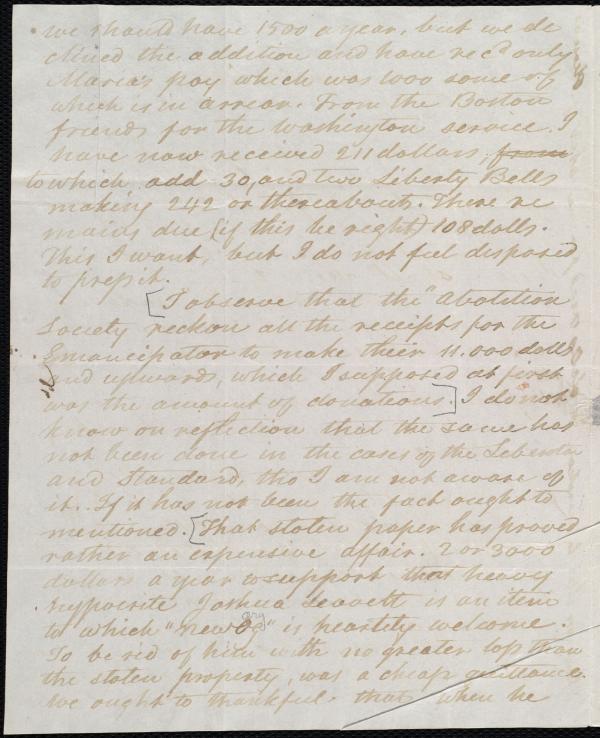 we should have 1500 a year, but we de
clined the addition and have rec^d only
Maria's pay which was 1000 some of
which is in arrear. From the Boston
friends for the Washington service. I
have now received 211 dollars, from
to which add 30, and two Liberty Bells
making 242 or thereabouts. There re
mains due (if this be right) 108 dolls.
This I want, but I do not feel disposed
to press it.
[I observe that the "Abolition
Society reckon all the receipts for the
Emancipator to make their 11.000 dolls
and upwards, which I supposed at first
was the amount of donations.] I do not
know on reflection that the same has
not been done in the cases of the Liberator
and Standard, tho I am not aware of
it. If it has not been the fact ought to
mentioned. [That stolen paper has proved
rather an expensive affair. 2 or 3000
dollars a year to support that heavy
hypocrite Joshua Leavett is an item
to which "new org" is heartily welcome.
To be rid of him with no greater loss than
the stolen property, was a cheap quittance.
We ought to thankful that when he